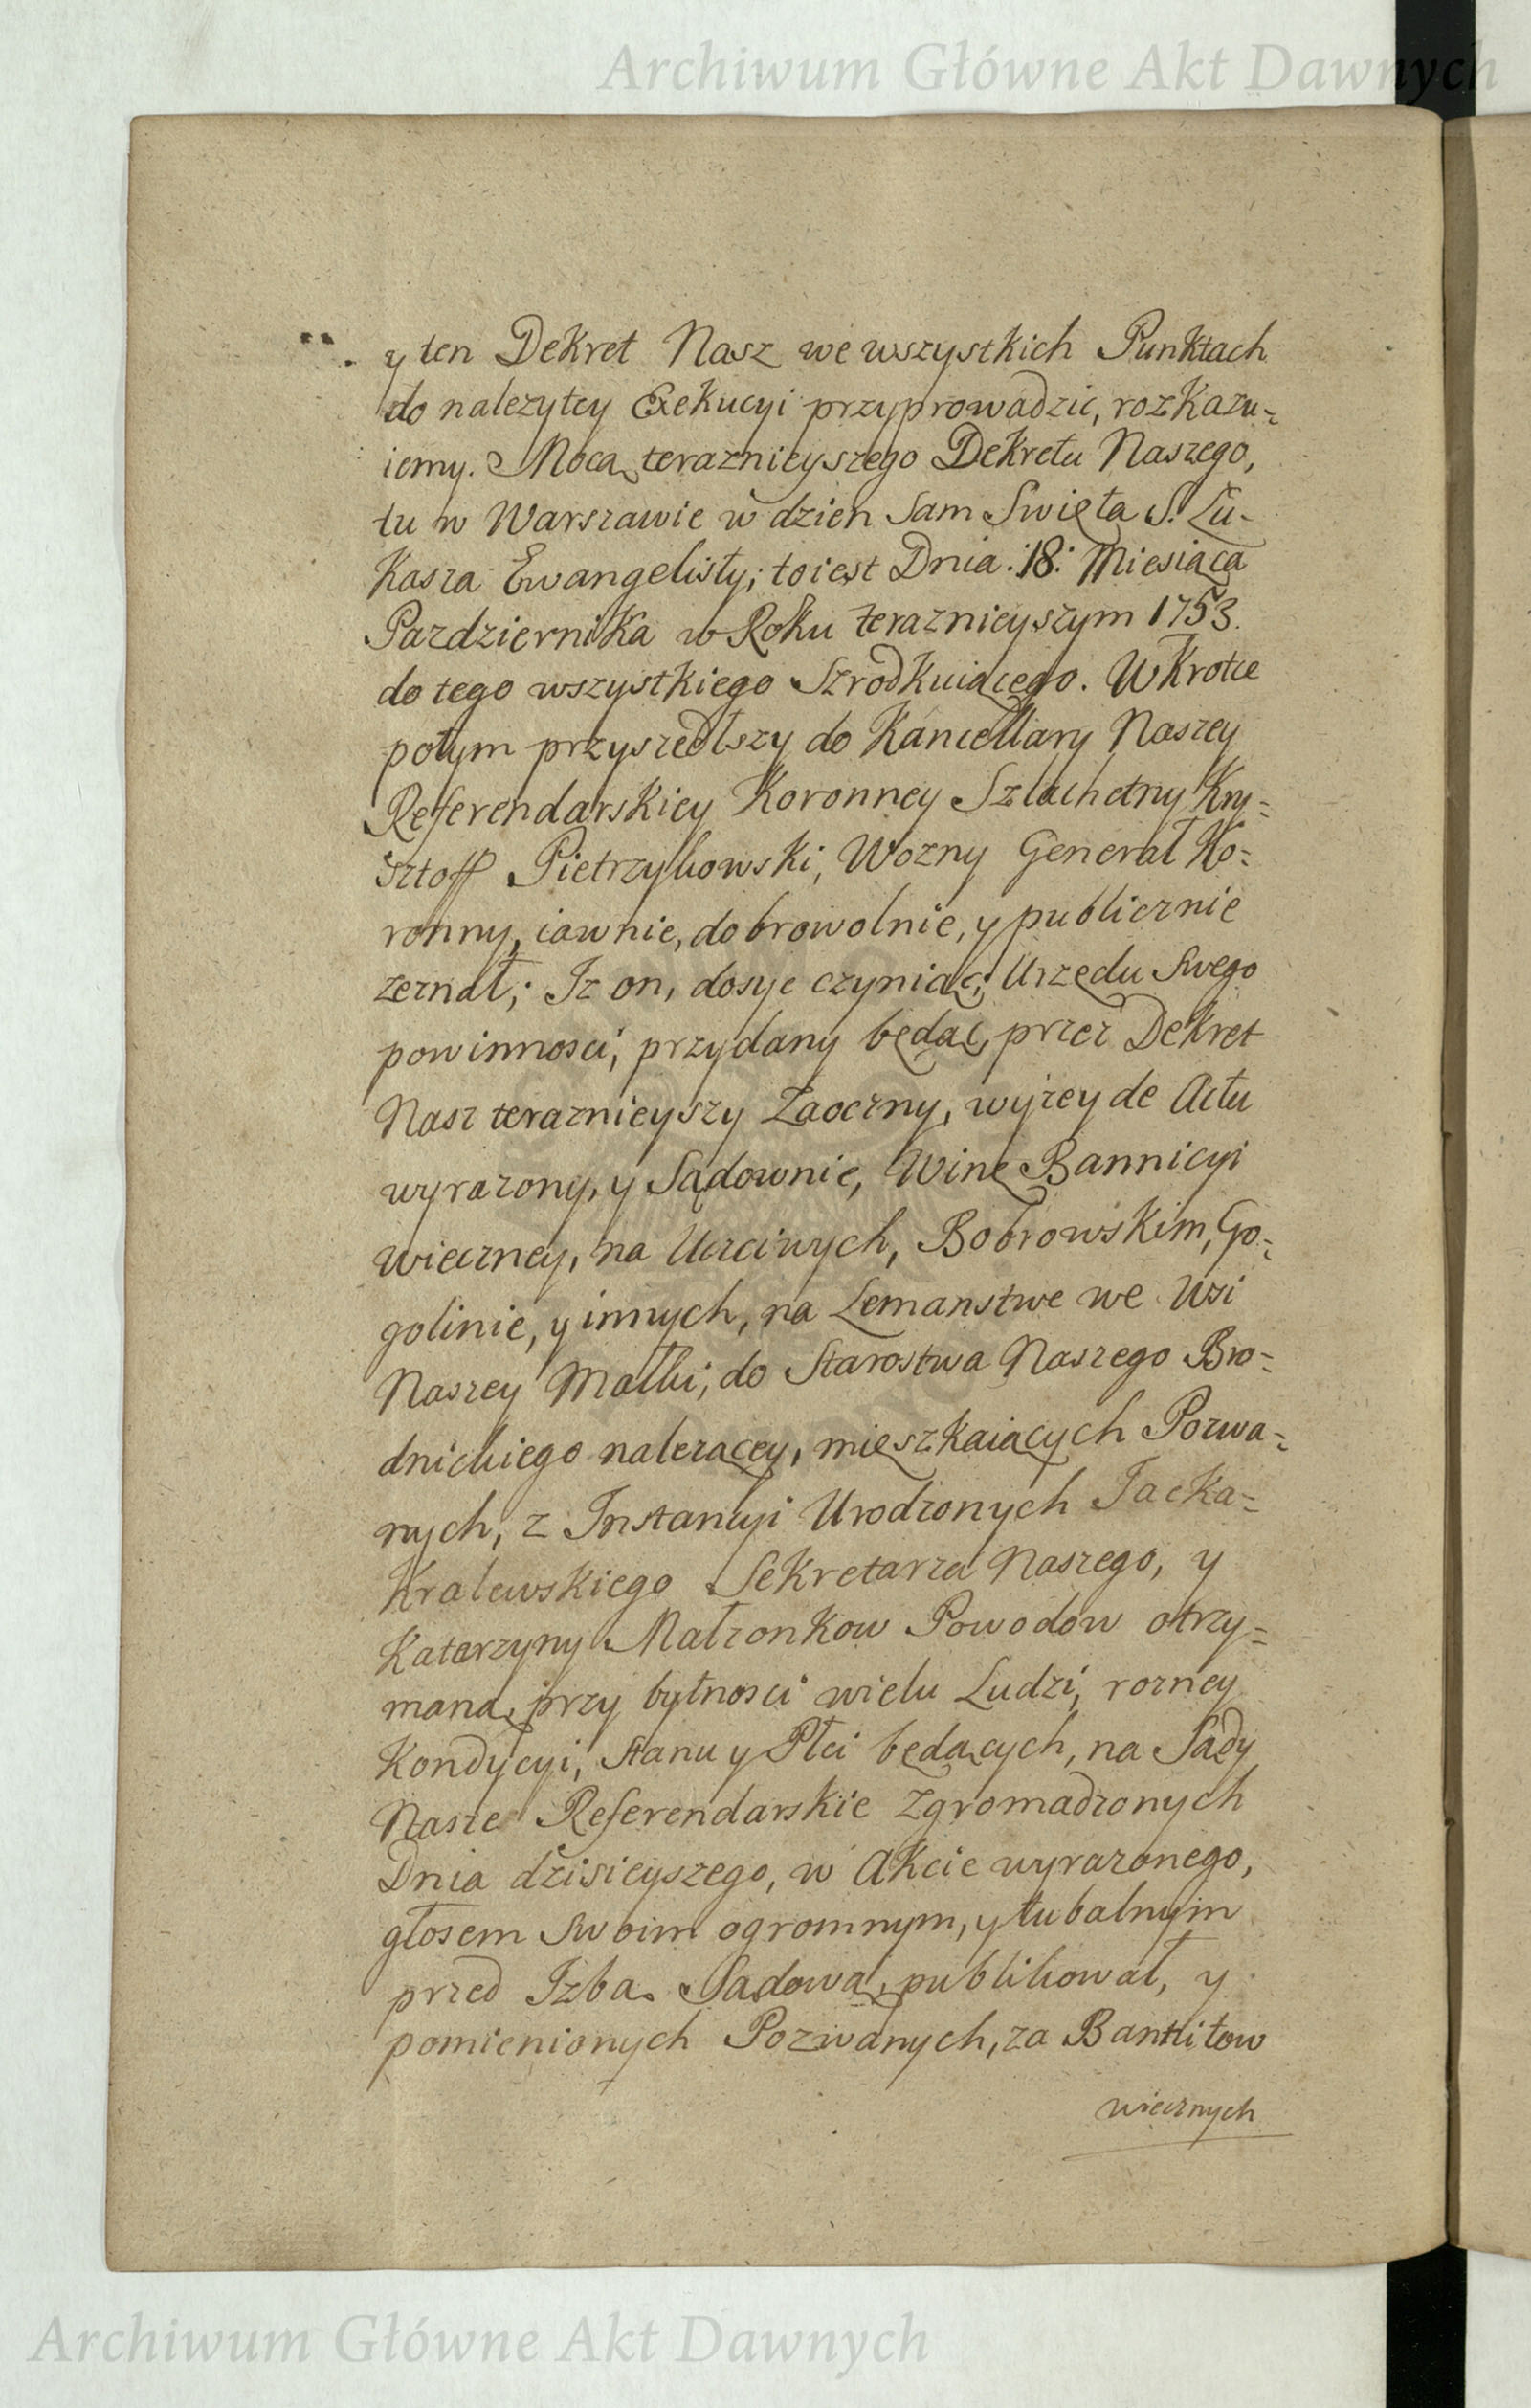 Archiwum Główne Akt Dawnych
y ten Dekret Nasz we wszystkich Punktach
do nalezytey Exekucyi przyprowadzic, rozkazu=
iemy. Mocą teraznieyszego Dekretu Naszego,
tu w Warszawie w dzien Sam Swięta S. Lu-
kasza Ewangelisty; toiest Dnia :18: Miesiąca
Pazdziernika w Roku teraznieyszym 1753.
do tego wszystkiego Szrodkuiącego. Wkrotce
potym przyszedłszy do Kancellary Naszey
Referendarskiey Koronney Szlachetny Kry=
sztoff Pietrzykowski, Wozny Generał Ko=
ronny, iawnie, dobrowolnie, y publicznie
zeznał; Iz on, dosyc czyniąc, Urzędu Swego
powinnosci, przydany będąc, przez Dekret
Nasz teraznieyszy Zaoczny, wyzey de Actu
wyrazony, y Sądownie, Winę Bannicyi
wieczney, na Uczciwych, Bobrowskim, Go=
golinie, y innych, na Lemanstwe we Wsi
Naszey Małki, do Starostwa Naszego Bro=
dnickiego nalezącey, mięszkaiących Pozwa=
nych, z Instancyi Urodzonych Jacka=
Kralewskiego Sekretarza Naszego, y
Katarzyny Małzonkow Powodow otrzy=
maną, przy bytnosci wielu Ludzi, rozney
Kondycyi, Stanu y Płci będących, na Sądy
Nasze Referendarskie Zgromadzonych
Dnia dzisieyszego, w Akcie wyrazonego,
głosem Swoim ogromnym, y tubalnym
przed Izbą Sądową, publikował, y
pomienionych Pozwanych, za Bannitow
wiecznych
Archiwum Główne Akt Dawnych